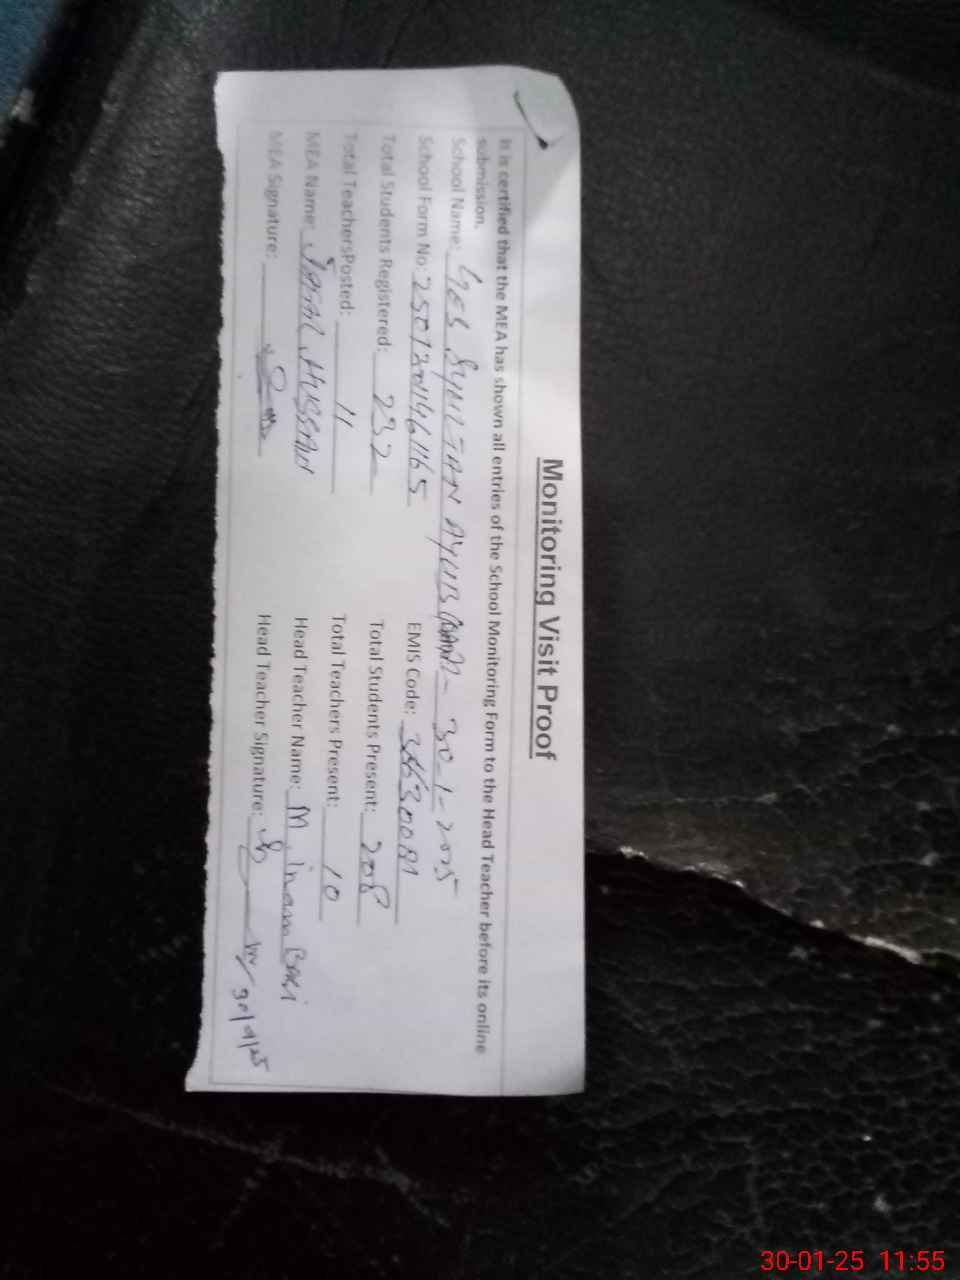 Monitoring Visit Proof
It is certified that the MEA has shown all entries of the School Monitoring Form to the Head Teacher before its online
submission.
School Name: AYUB 30-1-2025
School Form No: EMIS Code:
Total Students Registered: 232 Total Students Present: 208
Total TeachersPosted: 11 Total Teachers Present: 10
MEA Name: Head Teacher Name: M. inam
MEA Signature: Head Teacher Signature:
30-01-25 11:55